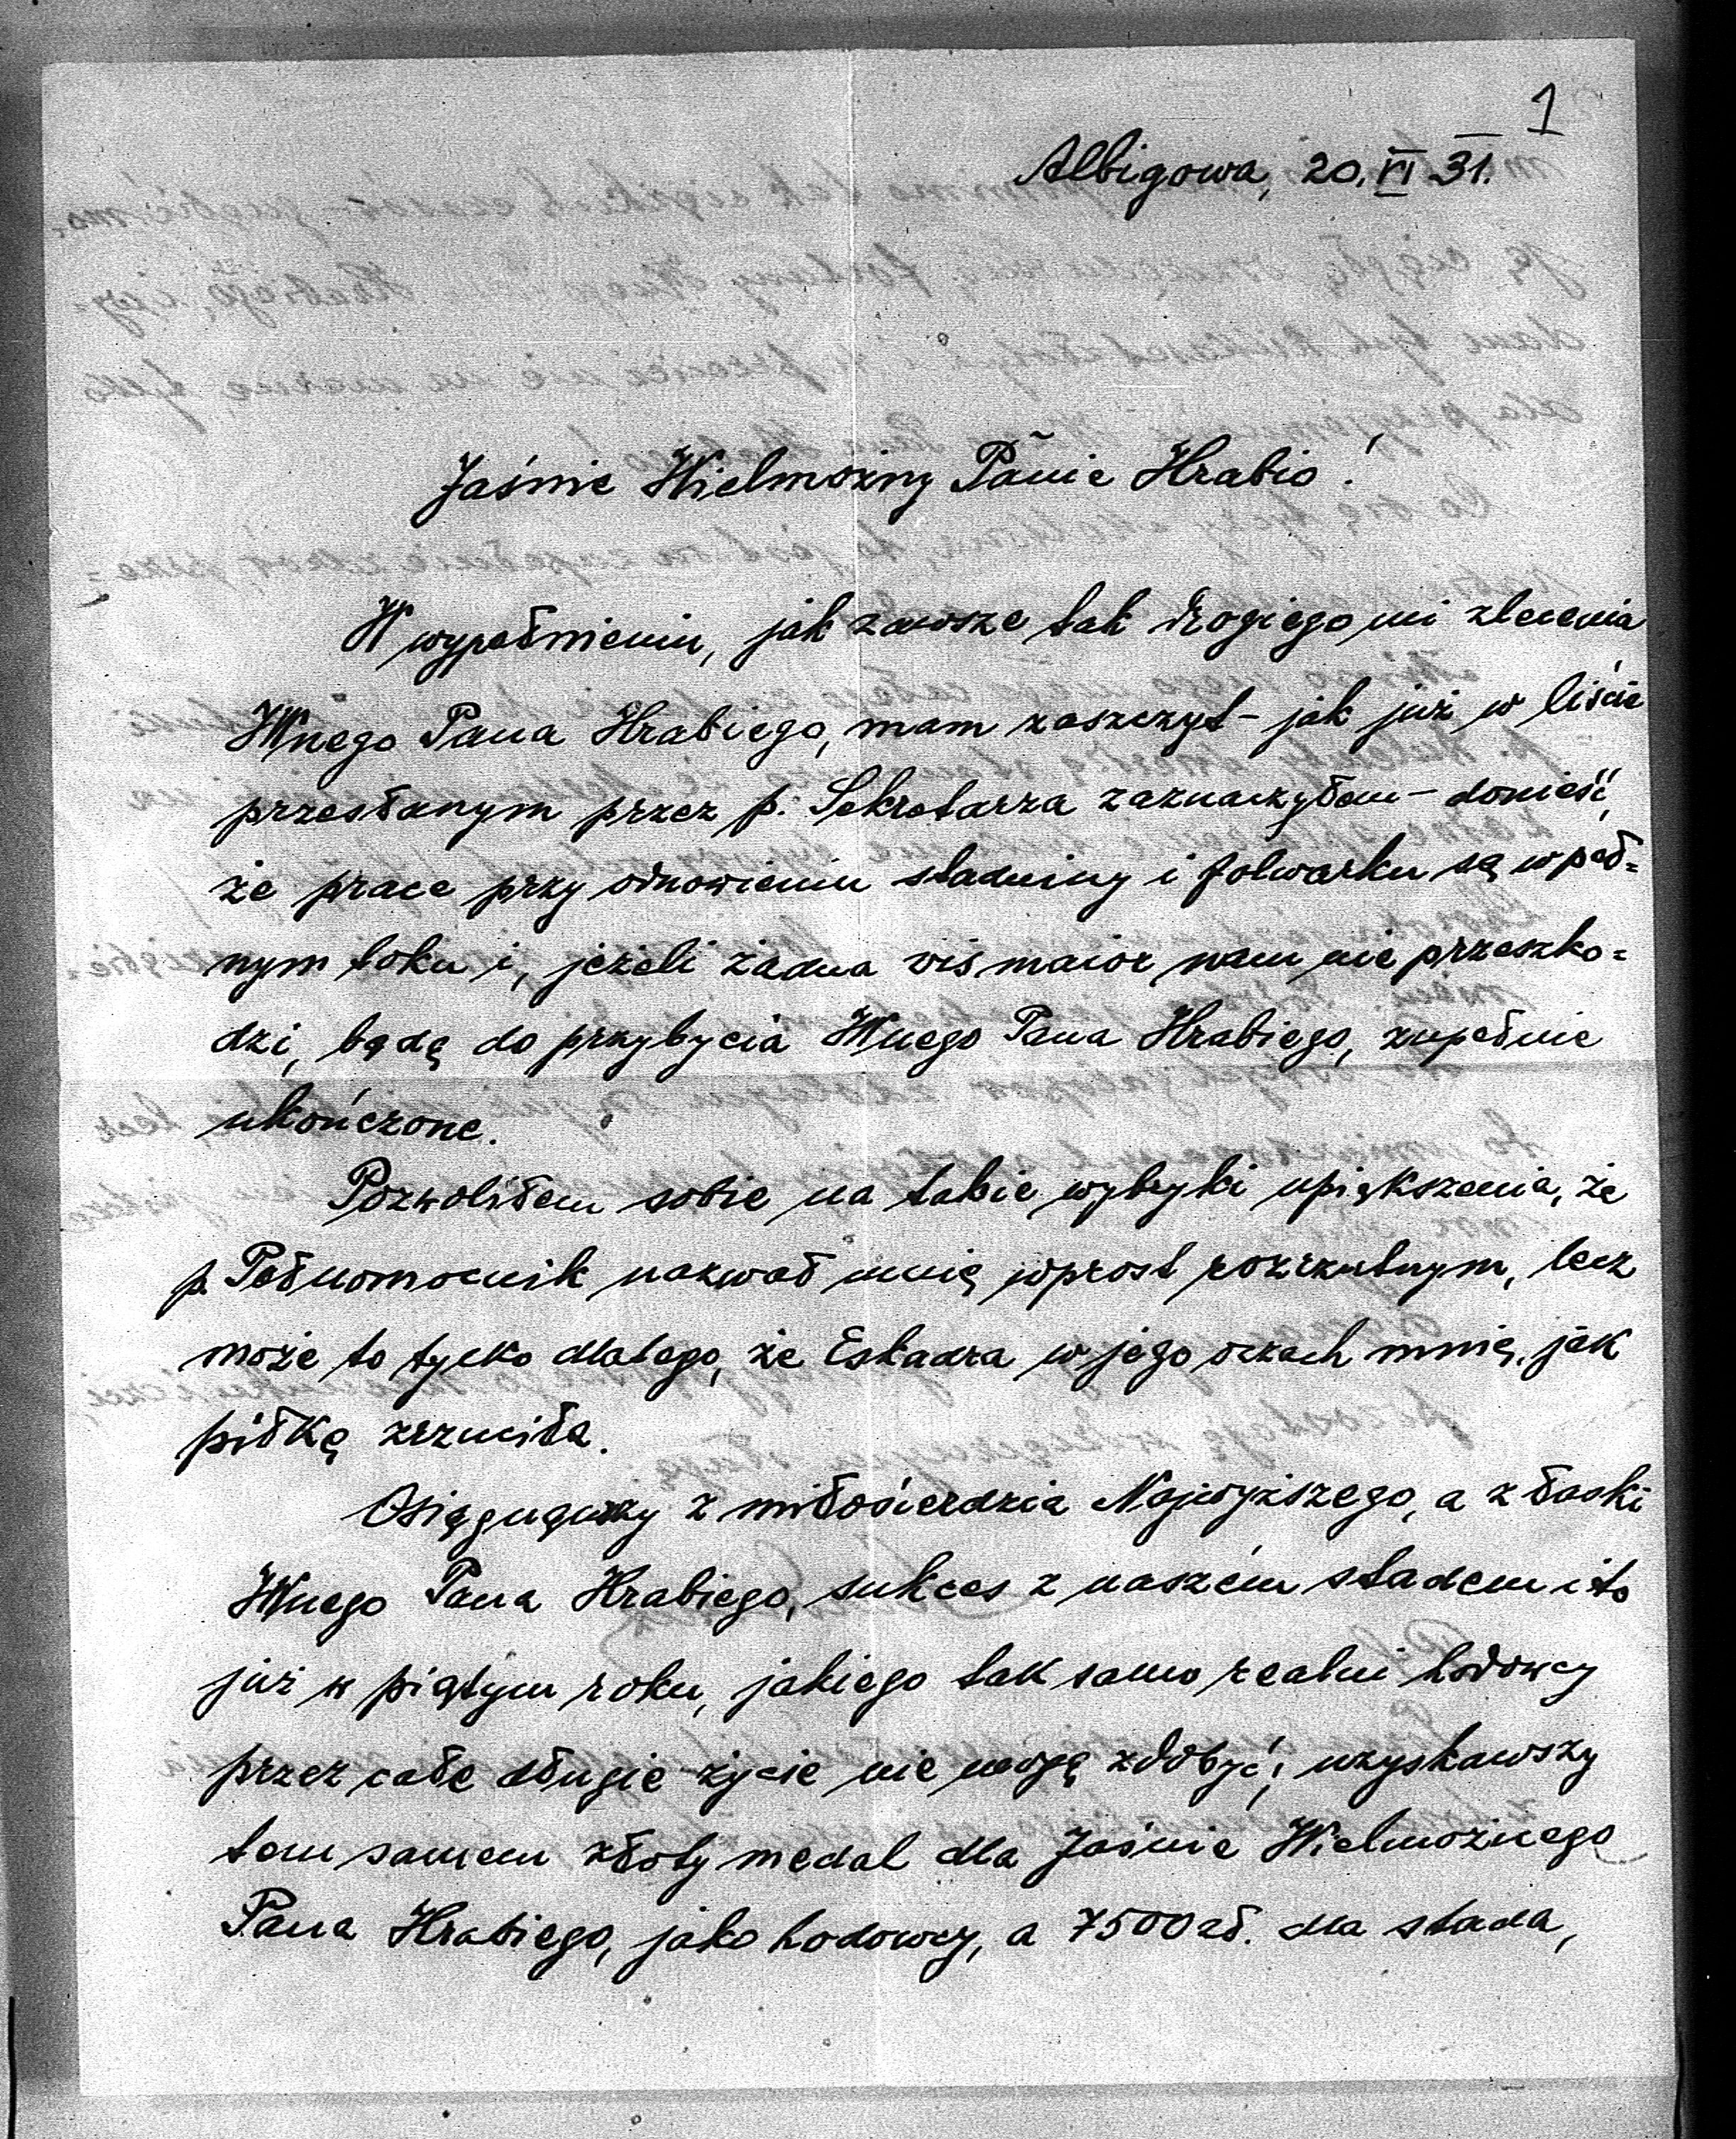 1
Albigowa, 20.VI 31.
Jaśnie Wielmożny Panie Hrabio!
W wypełnieniu, jak zawsze tak drogiego mi zlecenia
JWnego Pana Hrabiego, mam zaszczyt – jak już w liście
przesłanym przez p. Sekretarza zaznaczyłem – donieść,
że prace przy odnowieniu stadniny i folwarku są w peł=
nym toku i, jeżeli żadna vis maior nam nie przeszko=
dzi, będą do przybycia JWnego Pana Hrabiego, zupełnie
ukończone.
Pozwoliłem sobie na takie wybryki upiększenia, że
p. Pełnomocnik nazwał mnię wprost rozrzutnym, lecz
może to tylko dlatego, że Eskadra w jego oczach mnię, jak
piłkę zrzuciła.
Osiągnąwszy z miłosierdzia Najwyższego, a z łaski
JWnego Pana Hrabiego, sukces z naszém stadem i to
już w piątym roku, jakiego tak samo realni hodowcy
przez całe długie życie nie mogą zdobyć; uzyskawszy
tem samem złoty medal dla Jaśnie Wielmożnego
Pana Hrabiego, jako hodowcy, a 7500 zł. dla stada,